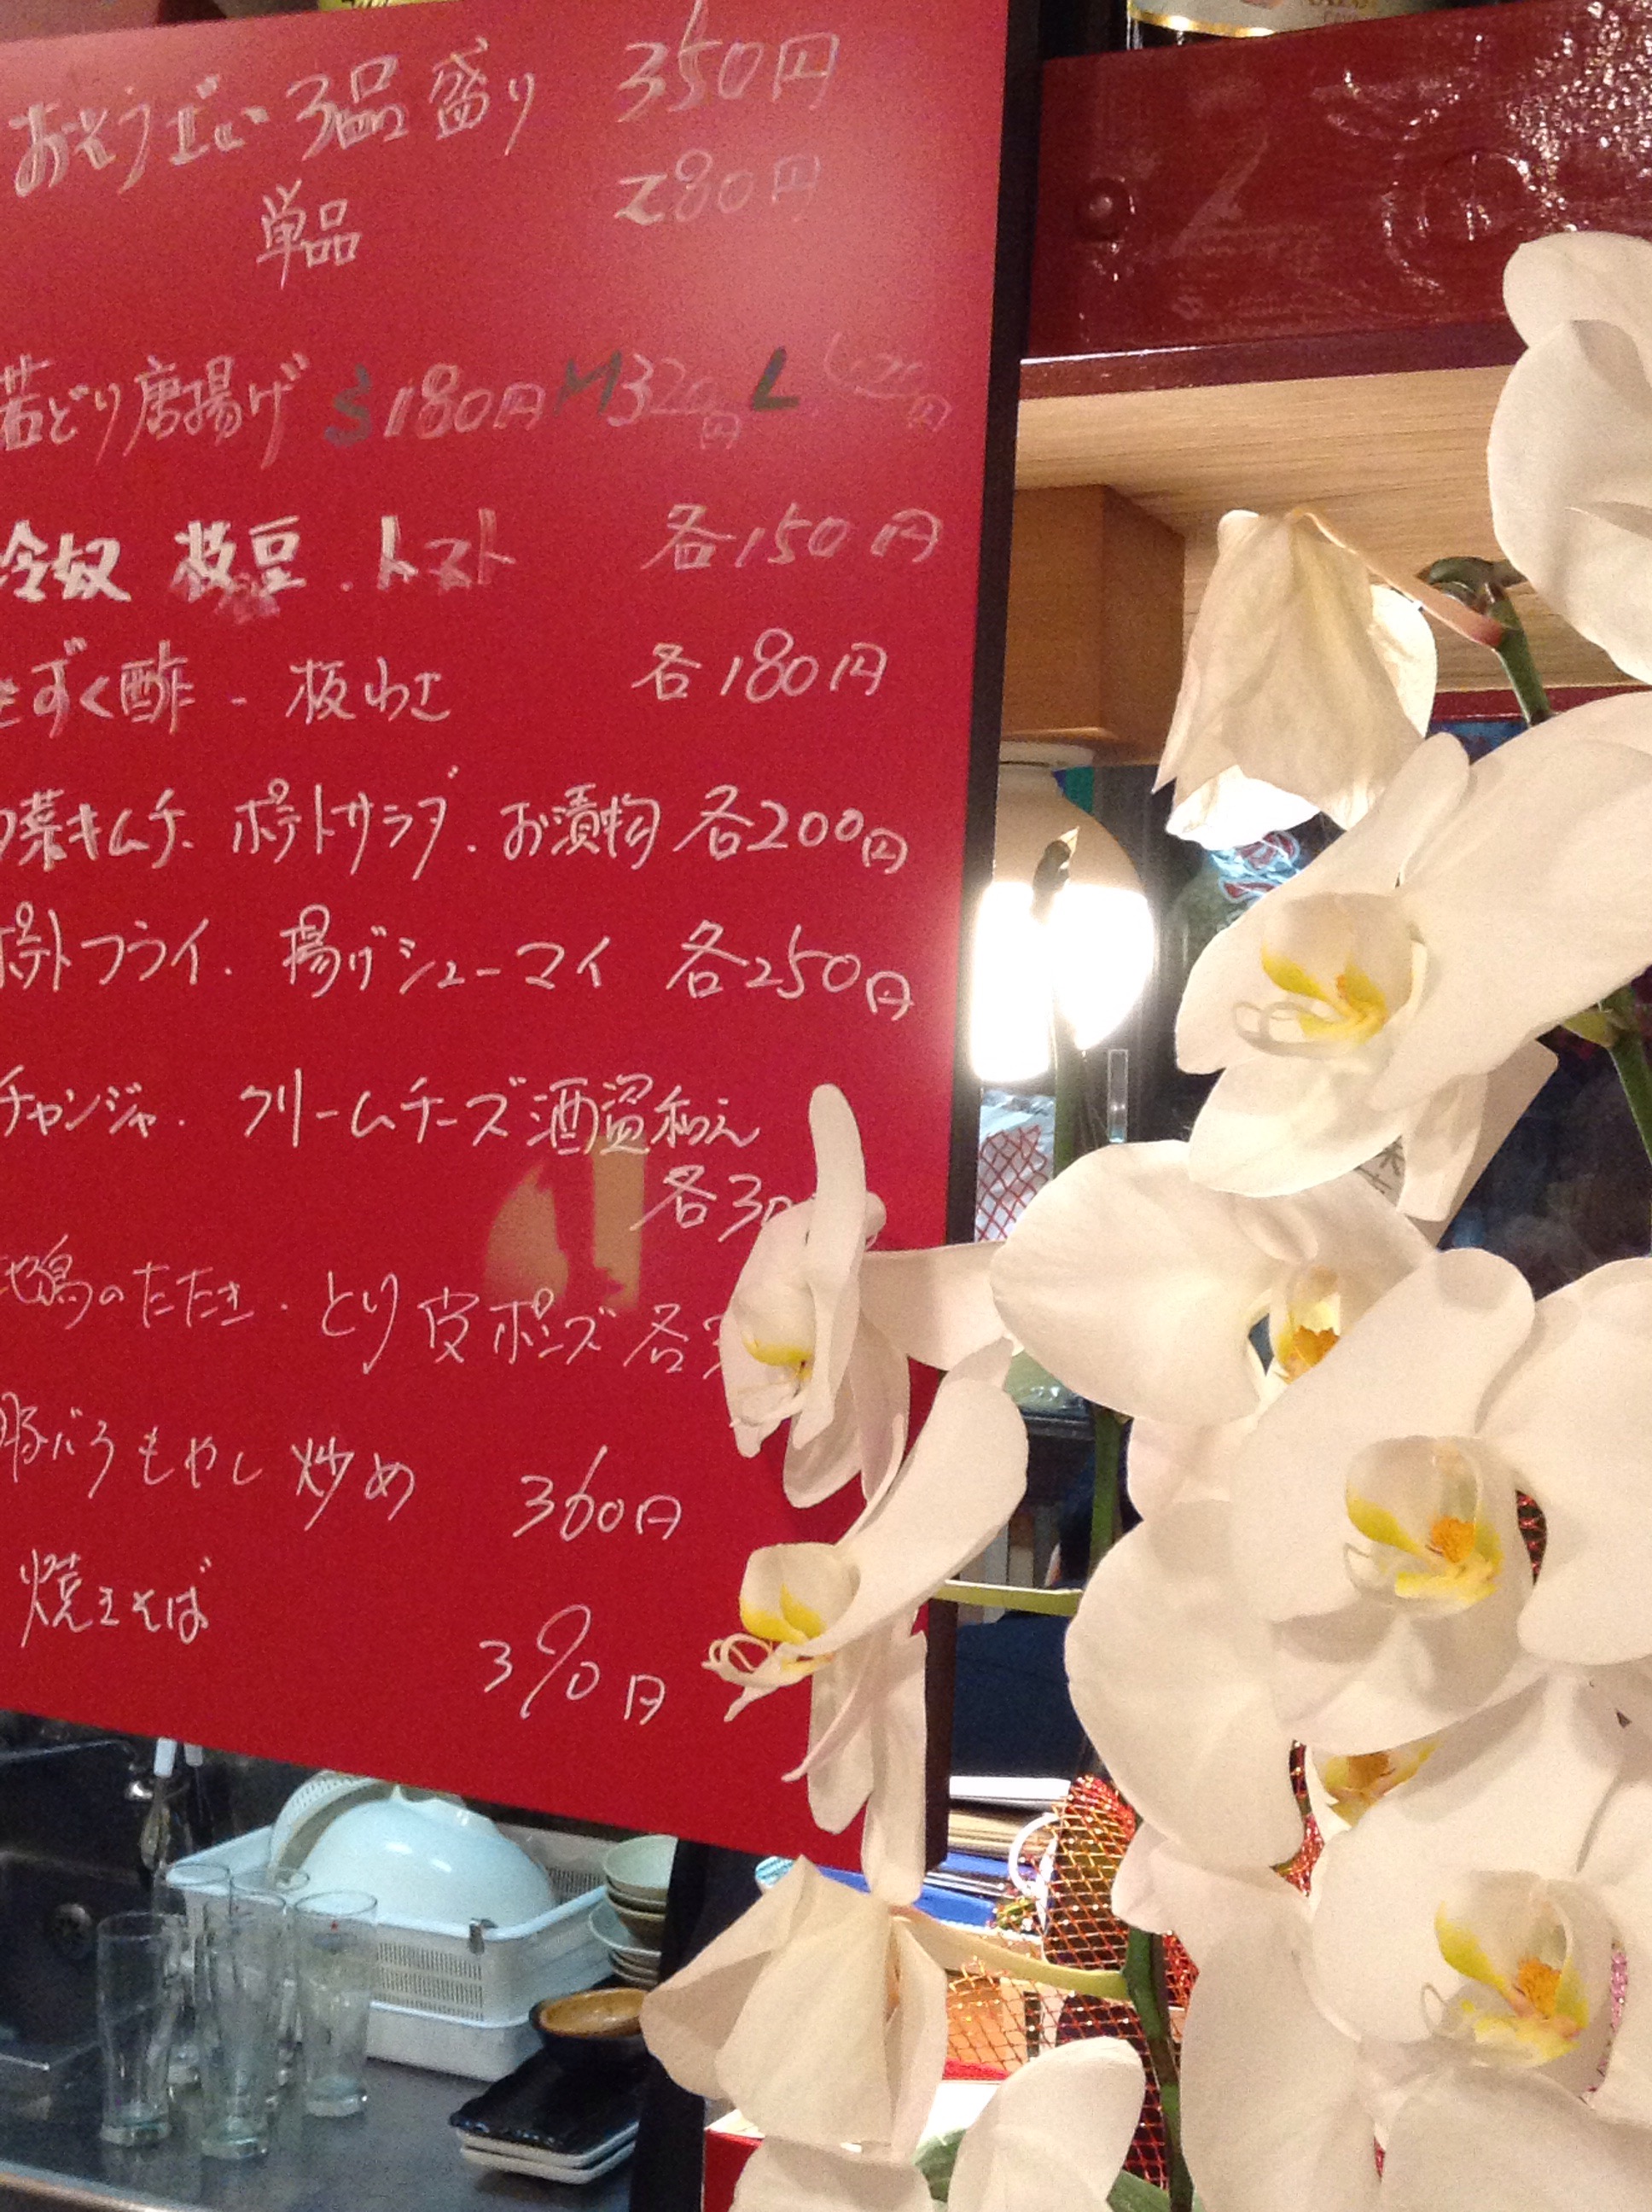 おそうざい3品盛り 350円
単品 280円
若どり唐揚げ S180円 M320円 L
冷奴 枝豆.トマト 各150円
ずく酢 - 板わさ 各180円
菜キムチ、ポテトサラダ.お漬物 各200円
ポテトフライ. 揚げシューマイ 各250円
チャンジャ. クリームチーズ酒盗和え
各30
地鶏のたたき.とり皮ポンズ 各
豚バラもやし炒め 360円
焼きそば 390円